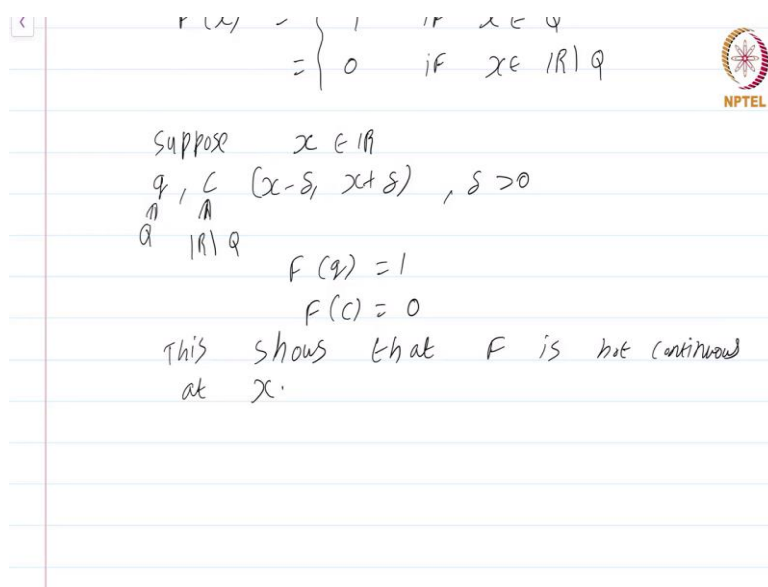 F(x) = { 1 if x ∈ Q
= { 0 if x ∈ IR \ Q
NPTEL
suppose x ∈ IR
q, c (x-δ, x+δ), δ > 0
Q IR \ Q
F(q) = 1
F(c) = 0
This shows that F is not continuous
at x.